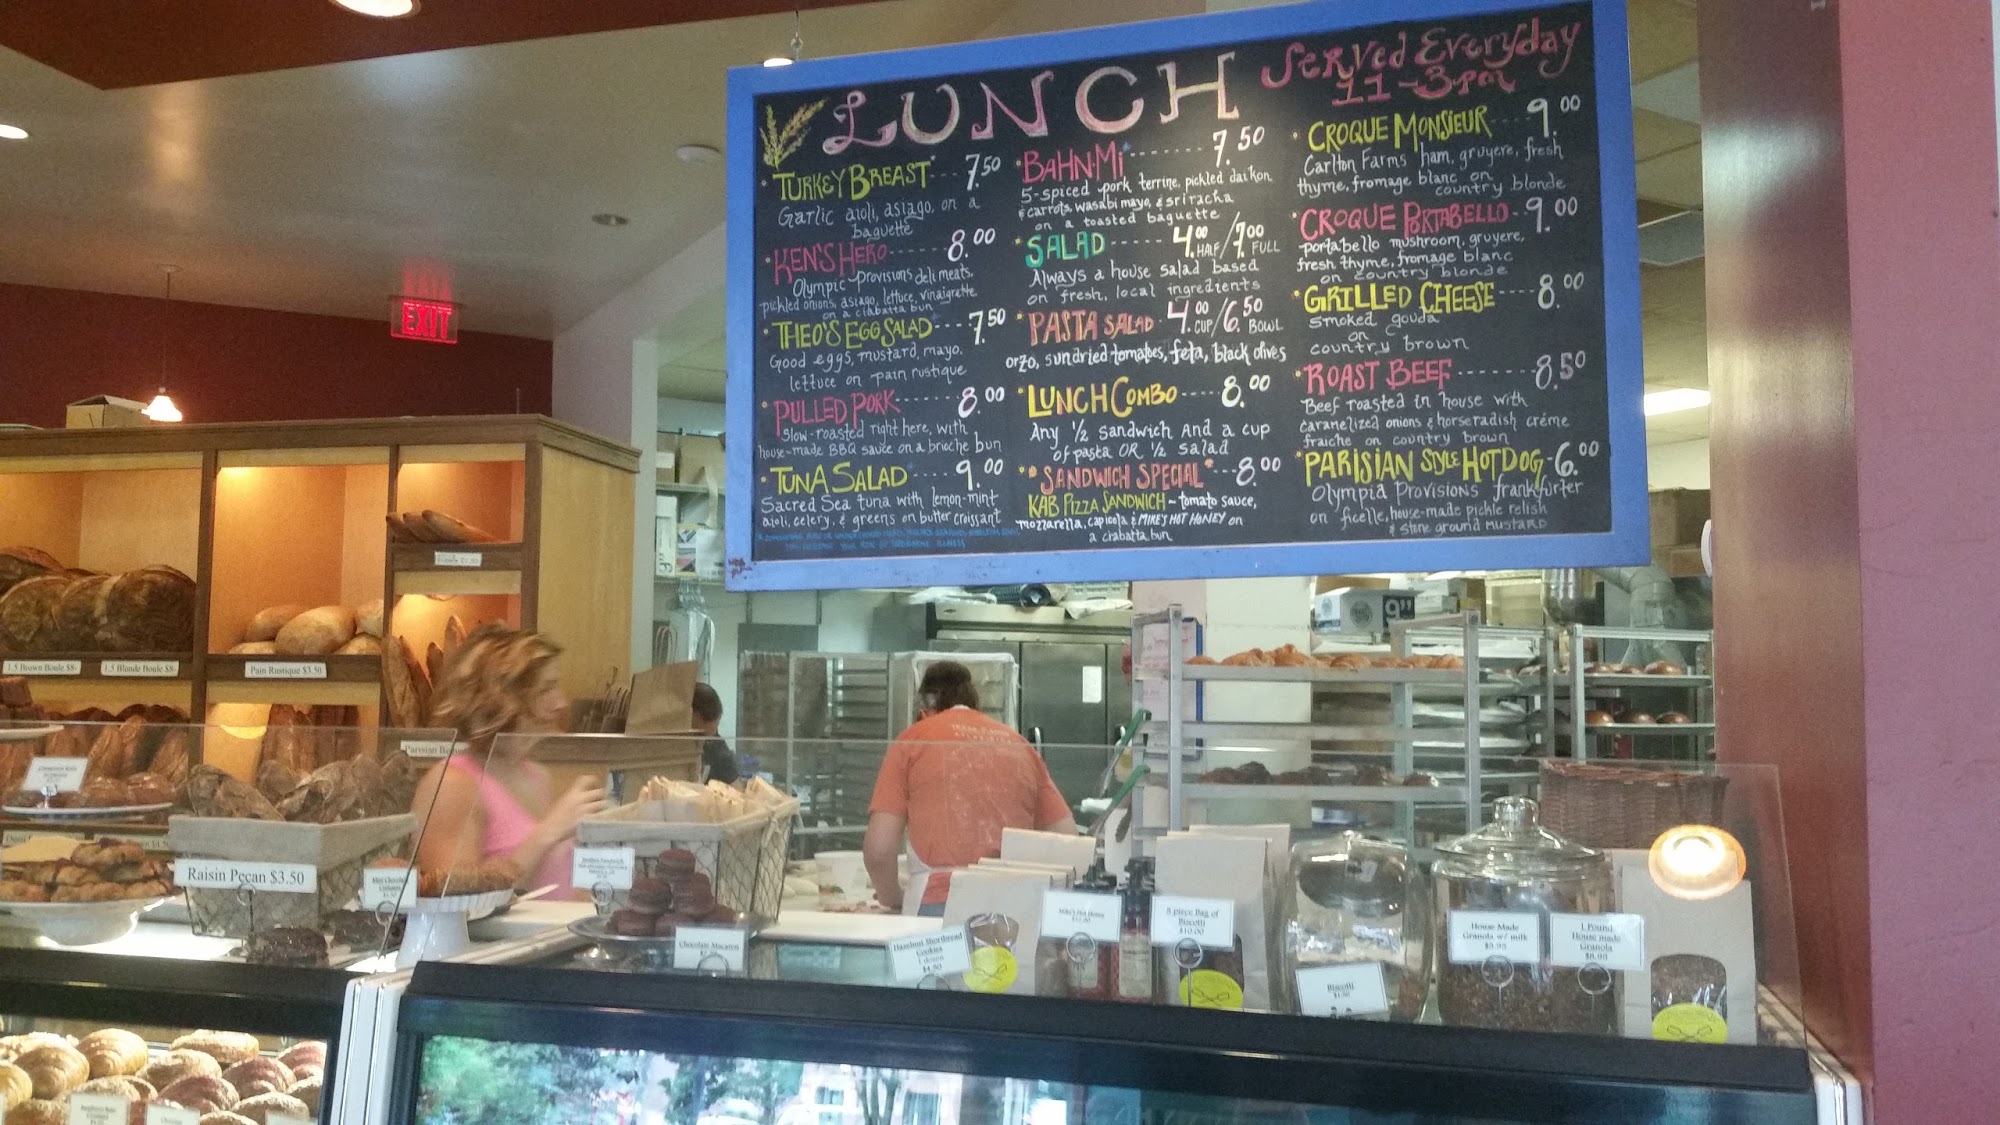 LUNCH
Served Everyday
11-3pm
• TURKEY BREAST* --- 7.50
Garlic aioli, asiago, on a
baguette
• KEN'S HERO ------ 8.00
Olympic provisions deli meats,
pickled onions, asiago, lettuce, vinaigrette
on a ciabatta bun
• THEO'S EGG SALAD --- 7.50
Good eggs, mustard, mayo,
lettuce on pain rustique
• PULLED PORK ------ 8.00
Slow-roasted right here, with
house-made BBQ sauce on a brioche bun
• TUNA SALAD ---- 9.00
Sacred Sea tuna with lemon-mint
aioli, celery, & greens on butter croissant
• BAHN-Mi* ------- 7.50
5-spiced pork terrine, pickled daikon
& carrots, wasabi mayo, & sriracha
on a toasted baguette
• SALAD ----- 4.00 HALF / 7.00 FULL
Always a house salad based
on fresh, local ingredients
• PASTA SALAD - 4.00 CUP / 6.50 BOWL
orzo, sundried tomatoes, feta, black olives
• LUNCH COMBO ---- 8.00
Any 1/2 sandwich And a cup
of pasta OR 1/2 salad
* SANDWICH SPECIAL * --- 8.00
KAB PIZZA SANDWICH - tomato sauce,
mozzarella, capicola & MIKE'S HOT HONEY on
a ciabatta bun
• CROQUE MONSIEUR --- 9.00
Carlton Farms ham, gruyere, fresh
thyme, fromage blanc on
country blonde
• CROQUE PORTABELLO -- 9.00
portabello mushroom, gruyere,
fresh thyme, fromage blanc
on country blonde
• GRILLED CHEESE ---- 8.00
smoked gouda
on
country brown
• ROAST BEEF ------- 8.50
Beef roasted in house with
caramelized onions & horseradish créme
fraiche on country brown
• PARISIAN STYLE HOT DOG - 6.00
Olympia Provisions frankfurter
on ficelle, house-made pickle relish
& stone ground MUSTARD
EXIT
9"
1.5 Brown Boule $8-
1.5 Blonde Boule $8-
Pain Rustique $3.50
Parisian
Raisin Pecan $3.50
Chocolate Macaron
Hazelnut Shortbread
Cookies
1 dozen
$4.50
Mike's Hot Honey
8 piece Bag of
Biscotti
$10.00
Biscotti
House Made
Granola w/ milk
$3.95
1 Pound
House made
Granola
$8.95